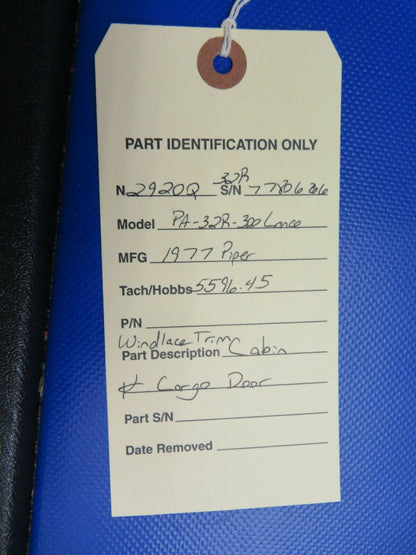 PART IDENTIFICATION ONLY
N 2920Q S/N 32R 77806366
Model PA-32R-300 Lance
MFG 1977 Piper
Tach/Hobbs 5596.45
P/N
Windlace Trim
Part Description Cabin
& Cargo Door
Part S/N
Date Removed